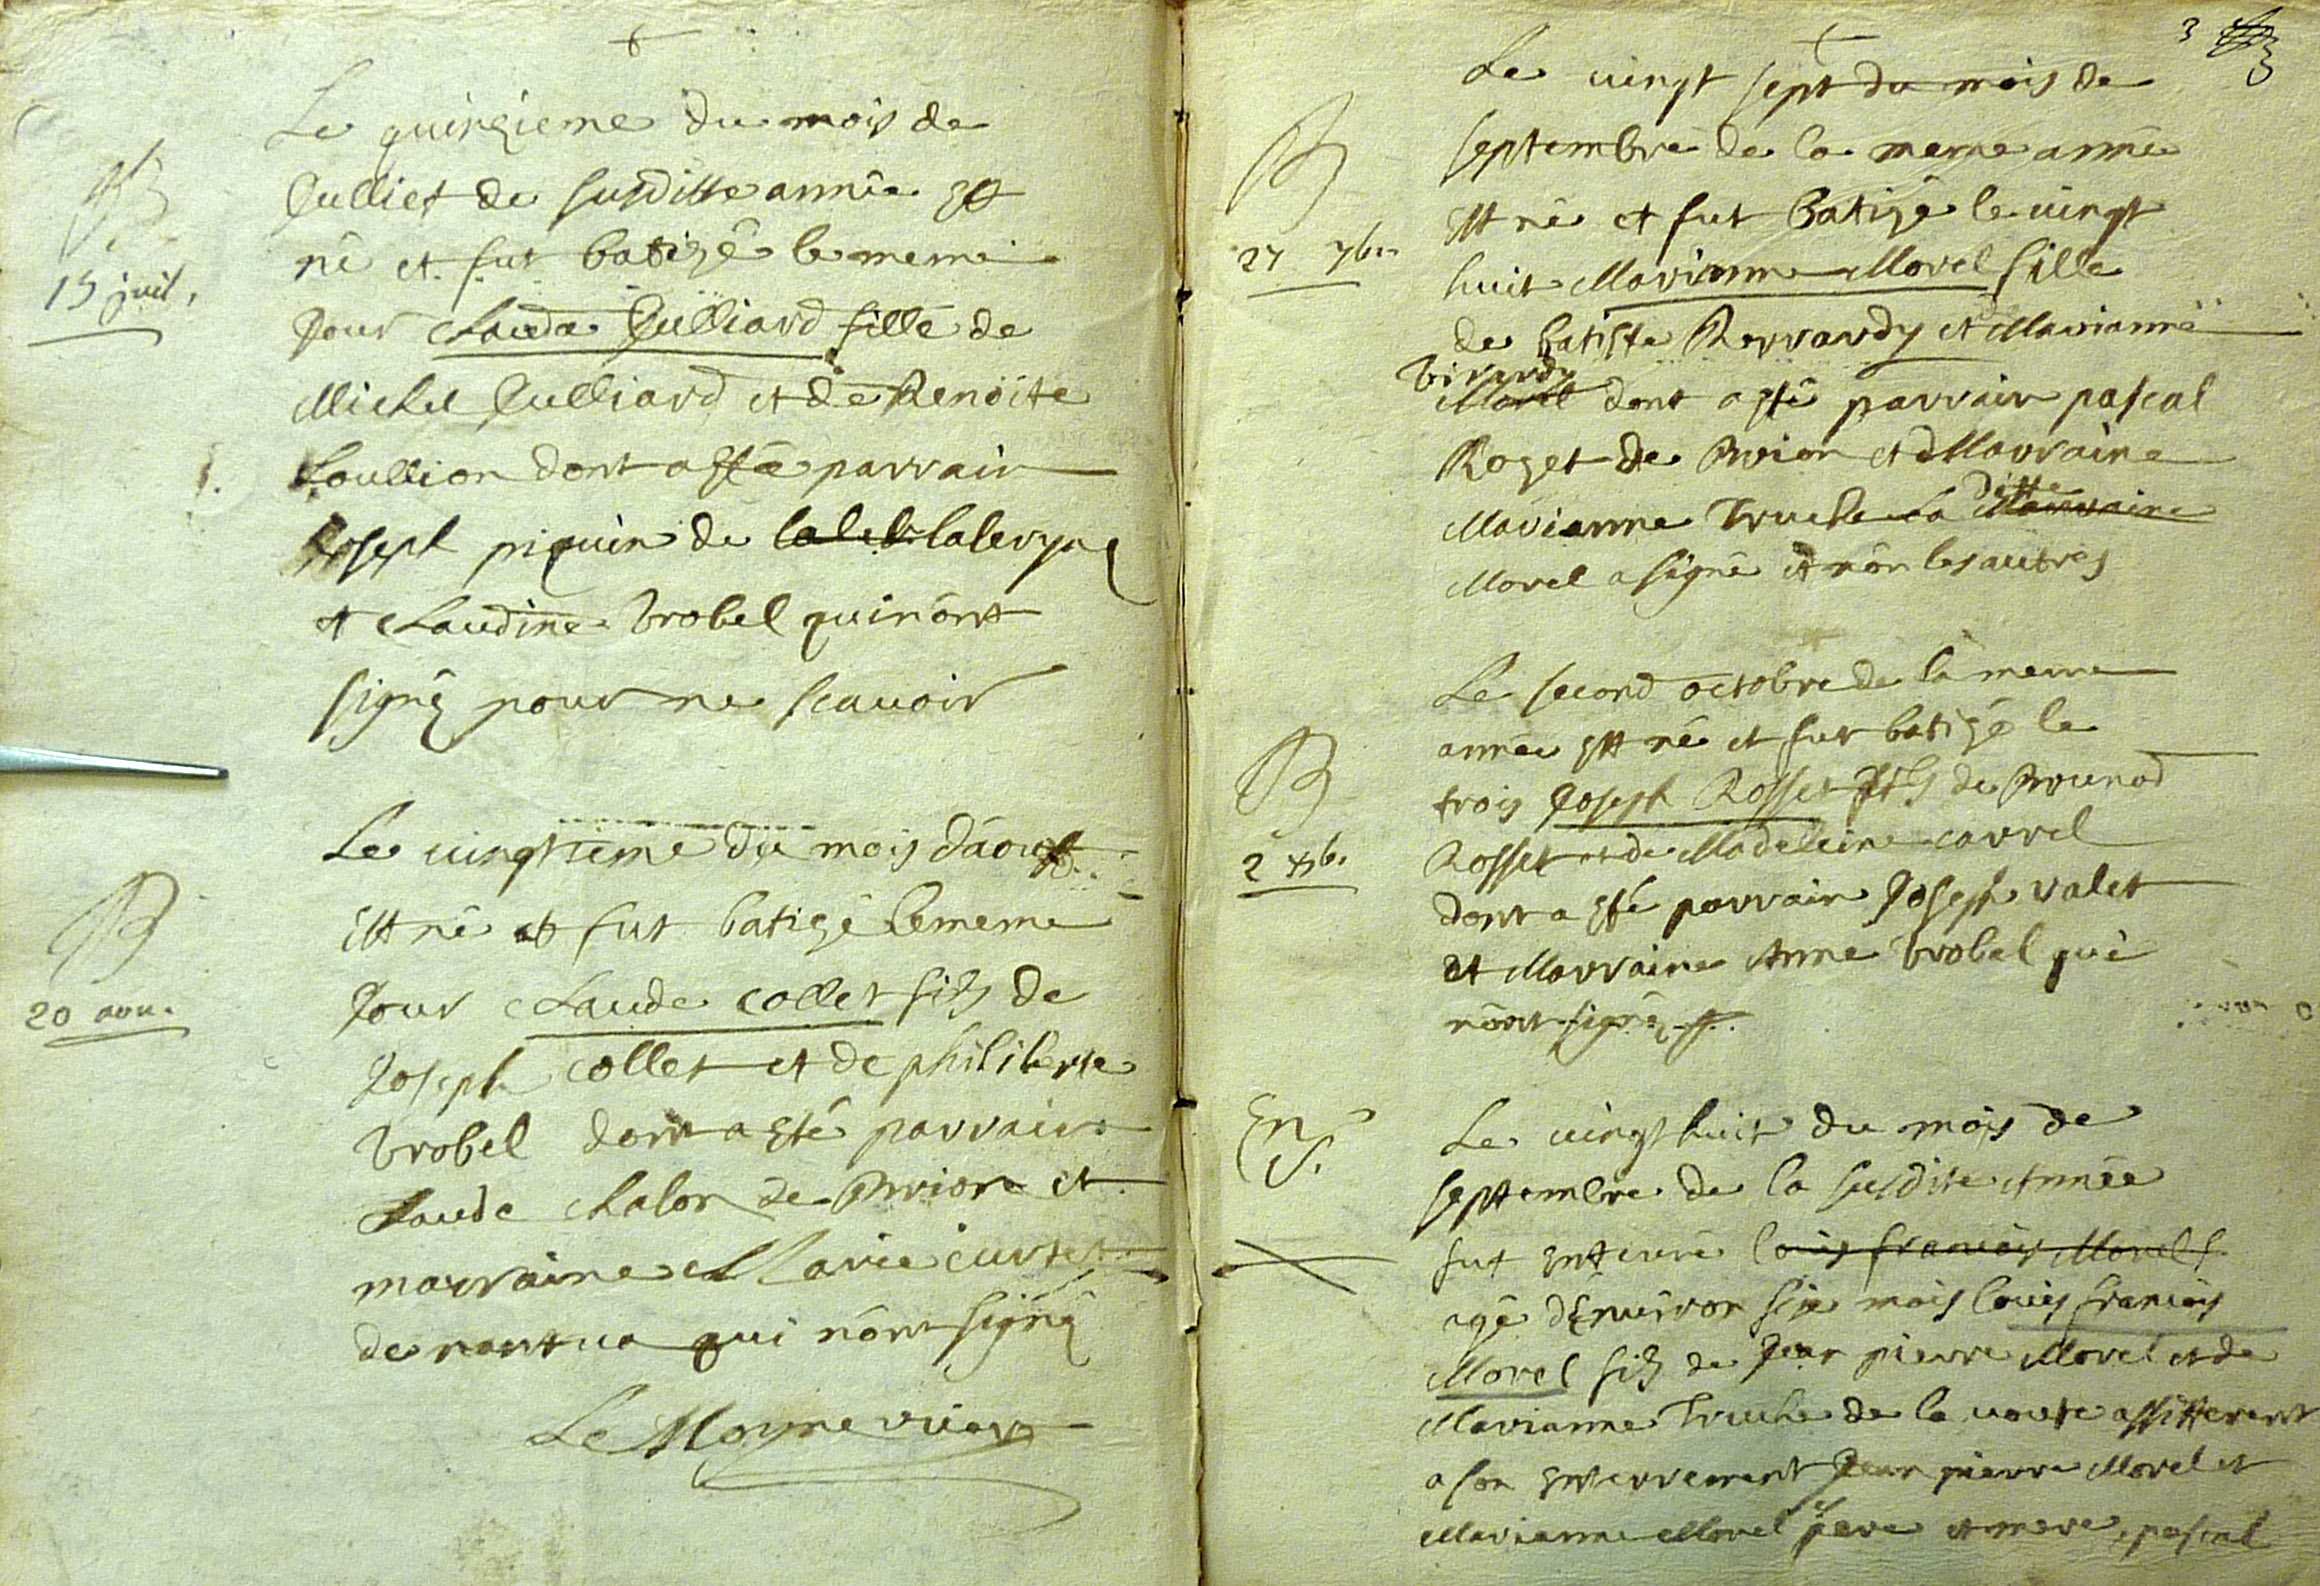 Le quinzieme du mois de
Julliet de susditte année est
né et fut batizé le meme
Jour Clauda Julliard fille de
Michel Julliard et de Benoite
Loullion dont a esté parrain
Joseph piquin de laleb laleryne
et Claudine brobel qui nont
signé pour ne scauoir
B
15 juil.
Le uingtieme du mois daoust
est né et fut batizé lememe
Jour Claude collet fils de
Joseph collet et de philiberte
brobel dont a esté parrain
Claude chalon de Brion et
marraine Marie curtet
de nantua qui nont signé
Le Moyne vicar
B
20 aou.
3
3
Le uingt sept du mois de
septembre de la meme année
est né et fut batizé le uingt
huit Marianne Morel fille
de batiste Berrardy et Marianne
birardy
Morel dont a esté parrain pascal
Roget de Brion et Marraine
ditte
Marianne Truche la Marraine
Morel a signé et non les autres
B
27 7bre
Le second octobre de la meme
année est né et fut batizé le
trois Joseph Rosset fils de Brunod
Rosset et de Madeleine carrel
dont a esté parrain Joseph valet
et Marraine Anne brobel qui
nont signé
B
2 8b.
Le uingt huit du mois de
septembre de la susdite Année
fut enterré louis francois Morel f
agé denuiron six mois louis francois
Morel fils de Jean pierre Morel et de
Marianne Truche de la uoute assisterent
a son enterrement Jean pierre Morel et
Marianne Morel pere et mere, pascal
En
S.